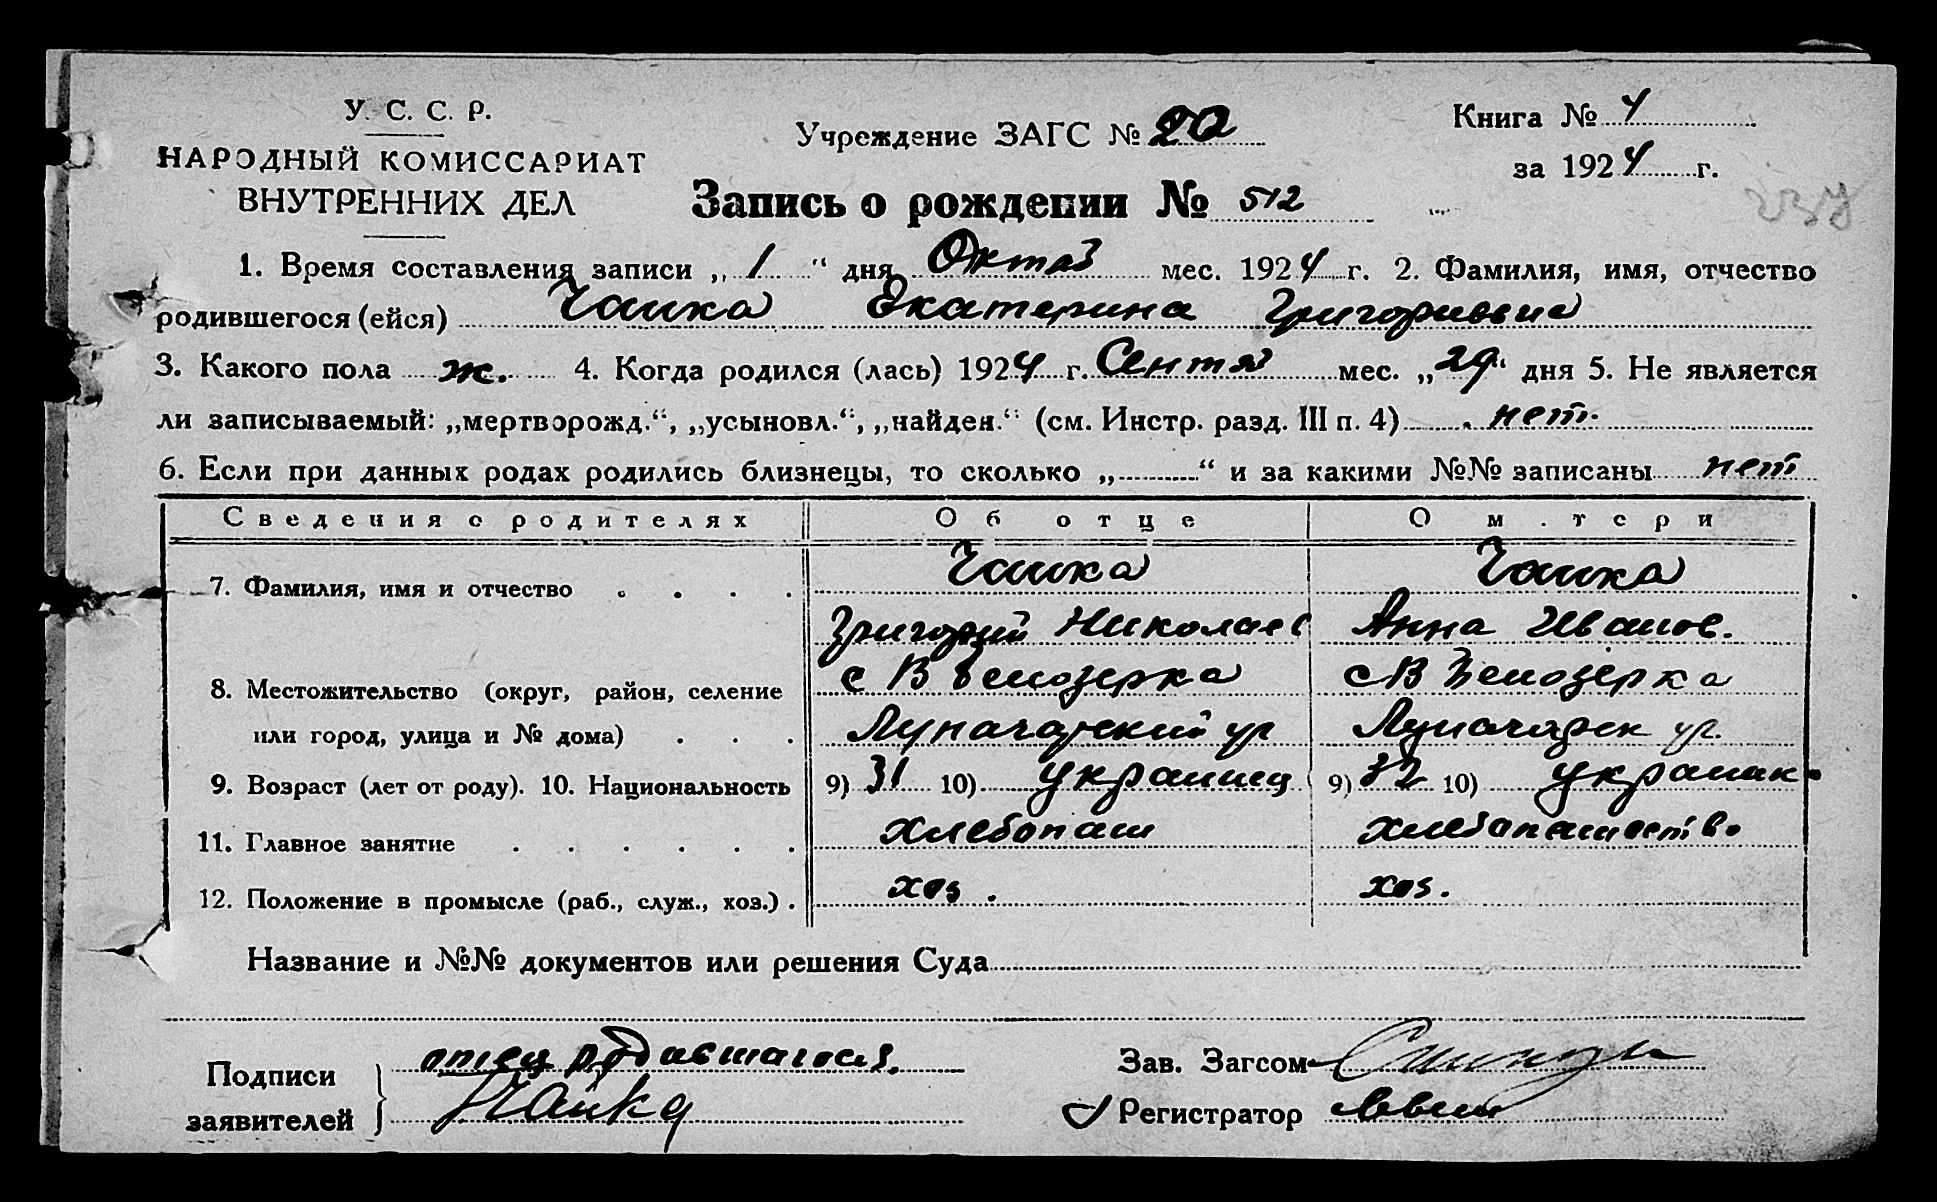 У. С. С. Р.
НАРОДНЫЙ КОМИССАРИАТ
ВНУТРЕННИХ ДЕЛ
Учреждение ЗАГС № 20
Книга № 4
за 1924 г.
Запись о рождении № 512
1. Время составления записи „ 1 “ дня Октяб мес. 1924 г. 2. Фамилия, имя, отчество
родившегося (ейся) Чайка Екатерина Григориевна
3. Какого пола ж. 4. Когда родился (лась) 1924 г. Сентя мес. „29“ дня 5. Не является
ли записываемый: „мертворожд.“, „усыновл.“, „найден.“ (см. Инстр. разд. III п. 4) нет.
6. Если при данных родах родились близнецы, то сколько „ “ и за какими №№ записаны нет
Сведения о родителях Об отце О м.тери
7. Фамилия, имя и отчество . . . . Чайка Чайка
Григорий Николаев Анна Иванов.
8. Местожительство (округ, район, селение с В Белозерка с В Белозерка
или город, улица и № дома) . . . Луначарский ул Луначарск ул.
9. Возраст (лет от роду). 10. Национальность 9) 31 10) украинец 9) 32 10) украинк.
11. Главное занятие . . . . . . хлебопаш хлебопашеств.
12. Положение в промысле (раб., служ., хоз.) . хоз. хоз.
Название и №№ документов или решения Суда
Подписи отец родившагося.
заявителей Чайка
Зав. Загсом
Регистратор